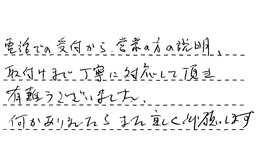 電話での受付から、営業の方の説明、
取付けまで丁寧に対応して頂き
有難うございました。
何かありましたらまた宜しくお願いします